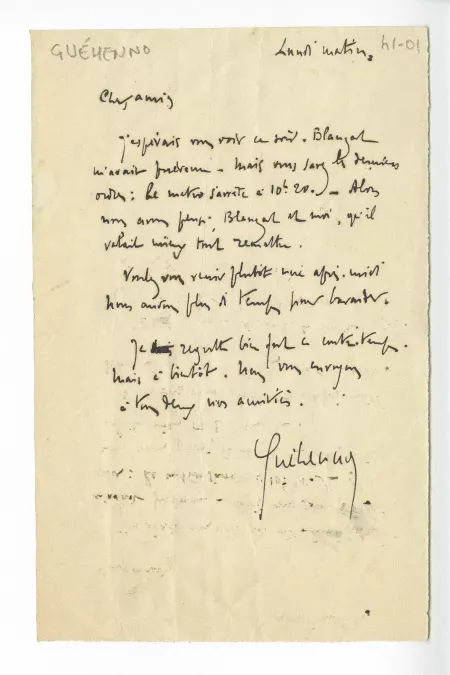 GUÉHENNO
Lundi matin,
41-01
Chers amis
J'espérais vous voir ce soir. Blanzat
m'avait prévenu. Mais vous savez les derniers
ordres : le métro s'arrête à 10h 20. — Alors
nous avons pensé, Blanzat et moi, qu'il
valait mieux tout remettre.
Voulez vous venir plutôt une après-midi
nous aurons plus de temps pour bavarder.
Je regrette bien fort ce contretemps.
Mais à bientôt. Nous vous envoyons
à tous deux nos amitiés.
Guéhenno